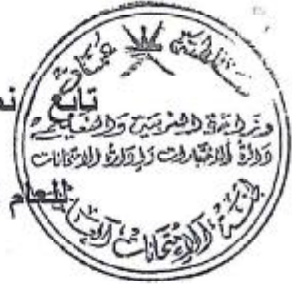 سلطنة عمان
تابع
وزارة التربية والتعليم
دائرة الاختبارات وإدارة الامتحانات
للعام
لجنة الامتحانات